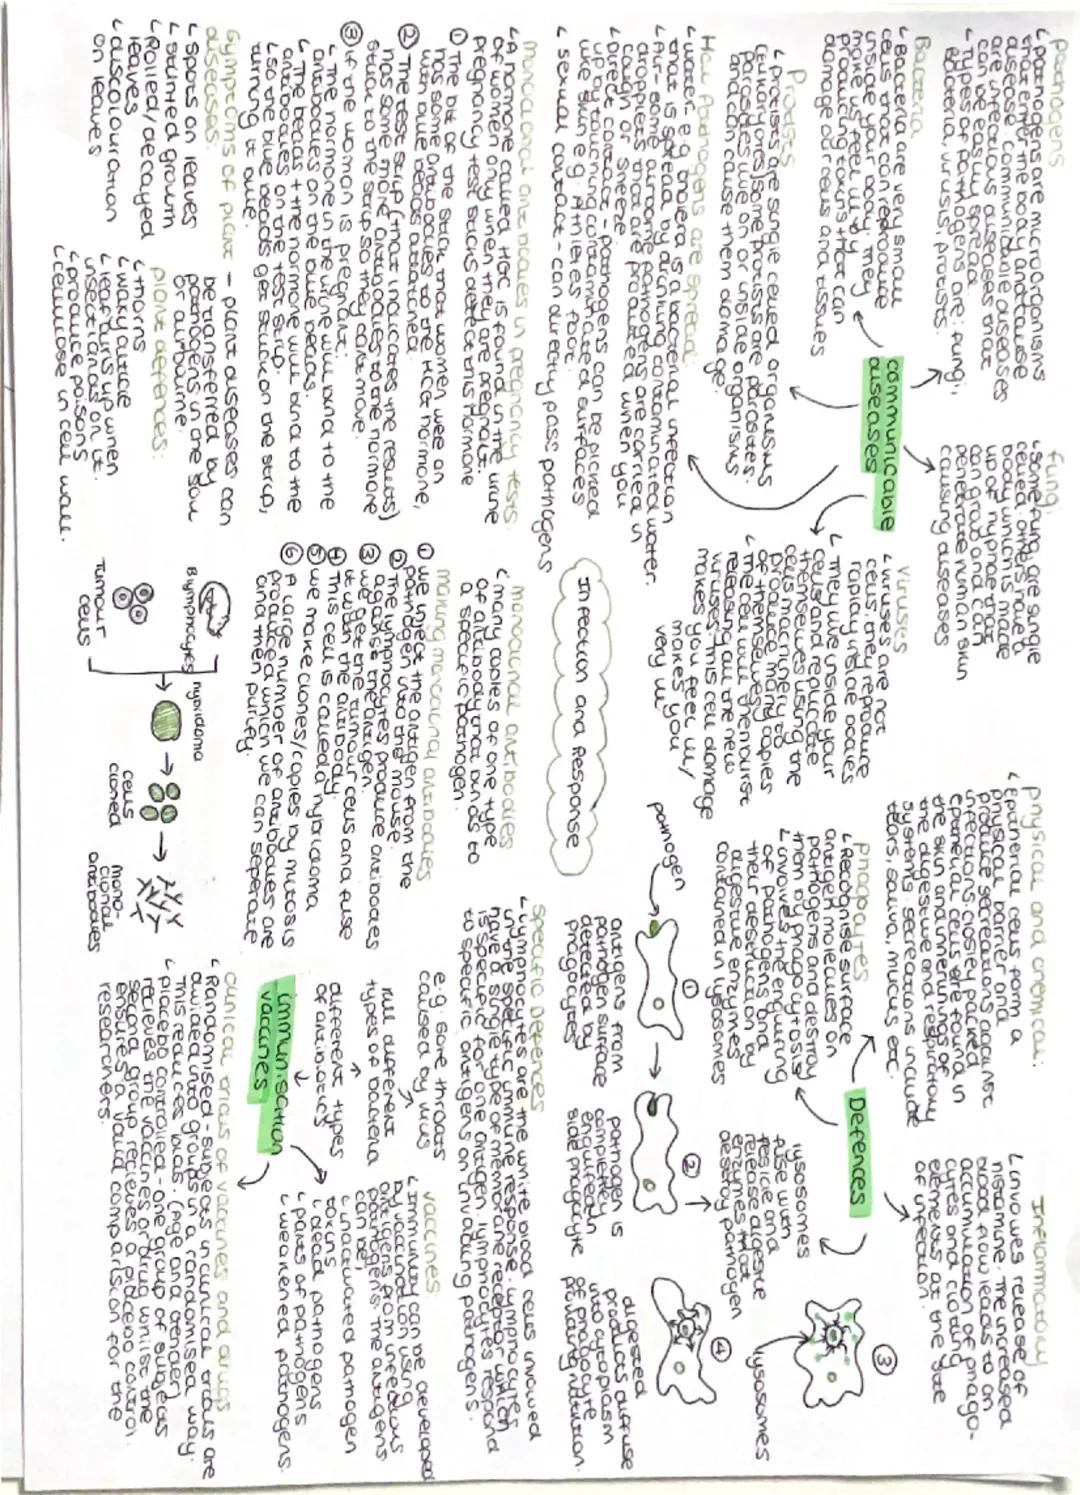 pathogens
↳ pathogens are microorganisms
that enter the body and cause
disease. Communicable diseases
are infectious diseases that
can be easily spread.
↳ Types of pathogens are: fungi,
bacteria, virusis, protists.
Bacteria
↳ Bacteria are very small
cells that can reproduce
inside your body. They
make you feel ill by
producing toxins that can
damage our cells and tissues
Protists
↳ protists are single celled organisms
(eukaryotes) some protists are parasites.
parasites live on or inside organisms
and can cause them damage.
communicable
diseases
fungi
↳ some fungi are single
celled. others have a
body which is made
up of hyphae that
can grow and can
penetrate human skin
causing diseases
viruses
↳ viruses are not
cells. they reproduce
rapidly inside bodies
↳ They live inside your
cells and replicate
themselves using the
cells machinery to
produce many copies
of themselves.
↳ The cell will then burst
releasing all the new
viruses. This cell damage
makes you feel ill /
makes you
very ill
How Pathogens are spread:
↳ water - e.g cholera is a bacterial infection
that is spread by drinking contaminated water.
↳ Air - some airborne pathogens are carried in
droplets that are produced when you
cough or sneeze.
↳ Direct contact - pathogens can be picked
up by touching contaminated surfaces
like skin e.g. Athletes foot.
↳ sexual contact - can directly pass pathogens
Infection and Response
Monoclonal antibodies in pregnancy tests.
↳ A hormone called HCG is found in the urine
of women only when they are pregnant.
pregnancy test sticks detect this hormone
① The bit of the stick that women wee on
has some antibodies to the HCG hormone,
with blue beads attatched.
② The test strip (that indicates the results)
has some more antibodies to the hormone
stuck to the strip so they can't move.
③ If the woman is pregnant:
↳ The hormone in the urine will bind to the
antibodies on the blue beads.
↳ The beads + the hormone will bind to the
antibodies on the test strip
↳ so the blue beads get stuck on the strip,
turning it blue.
Symptoms of plant
diseases:
↳ spots on leaves
↳ stunted growth
↳ Rolled/decayed
leaves
↳ discolouration
on leaves
- plant diseases can
be transferred by
pathogens in the soil
or airbourne.
plant defences:
↳ thorns
↳ waxy cuticle
↳ leaf curls up when
insect lands on it.
↳ produce poisons
↳ cellulose in cell wall.
monoclonal antibodies
↳ many copies of one type
of antibody that binds to
a specific pathogen.
making monoclonal antibodies
① we inject the antigen from the
pathogen into the mouse.
② The lymphocytes produce antibodies
against the antigen.
③ we get the tumour cells and fuse
it with the antibody.
④ This cell is called a hybridoma
⑤ we make clones/copies by mitosis
⑥ A large number of antibodies are
produced which we can seperate
and then purify.
B lymphocytes
Tumour
cells
hybridoma
cells
cloned
mono-
clonal
antibodies
physical and chemical:
↳ Epithelial cells form a
physical barrier and
produce secretions against
infections. closley packed
epithelial cells are found in
the skin and linings of
the digestive and respiratory
systems. secretions include
tears, saliva, mucus etc.
phagocytes
↳ Recognise surface
antigen molecules on
pathogens and destroy
them by phagocytosis
↳ involves the engulfing
of pathogens and
their destruction by
digestive enzymes
contained in lysosomes
Defences
Inflammatory
↳ involves release of
histamine. The increased
blood flow leads to an
accumulation of phago-
cytes and clotting
elements at the site
of infection.
pathogen
①
antigens from
pathogen surface
detected by
phagocytes
②
pathogen is
completley
engulfed in
side phagocyte
lysosomes
fuse with
vesicle and
release digestive
enzymes that
destroy pathogen
③
lysosomes
④
digested
products diffuse
into cytoplasm
of phagocyte
providing nutrition.
Specific Defences
↳ Lymphocytes are the white blood cells involved
in the specific immune response. Lymphocytes
have a single type of membrane receptor which
is specific for one antigen. lymphocytes respond
to specific antigens on invading pathogens.
e.g. sore throats
caused by virus
kill different
types of bacteria
different types
of antibiotics
immunisation
vaccines
vaccines:
↳ immunity can be developed
by vaccination using
antigens from infectious
pathogens. The antigens
can be;
↳ inactivated pathogen
toxins
↳ dead pathogens
↳ parts of pathogens
↳ weakened pathogens.
clinical trials of vaccines and drugs
↳ Randomised - subjects in clinical trials are
divided into groups in a randomised way.
This reduces bias. (Age and gender)
↳ placebo controlled - one group of subjects
recieves the vaccines or drug whilst the
second group recieves a placebo control.
ensures a valid comparision for the
researchers.